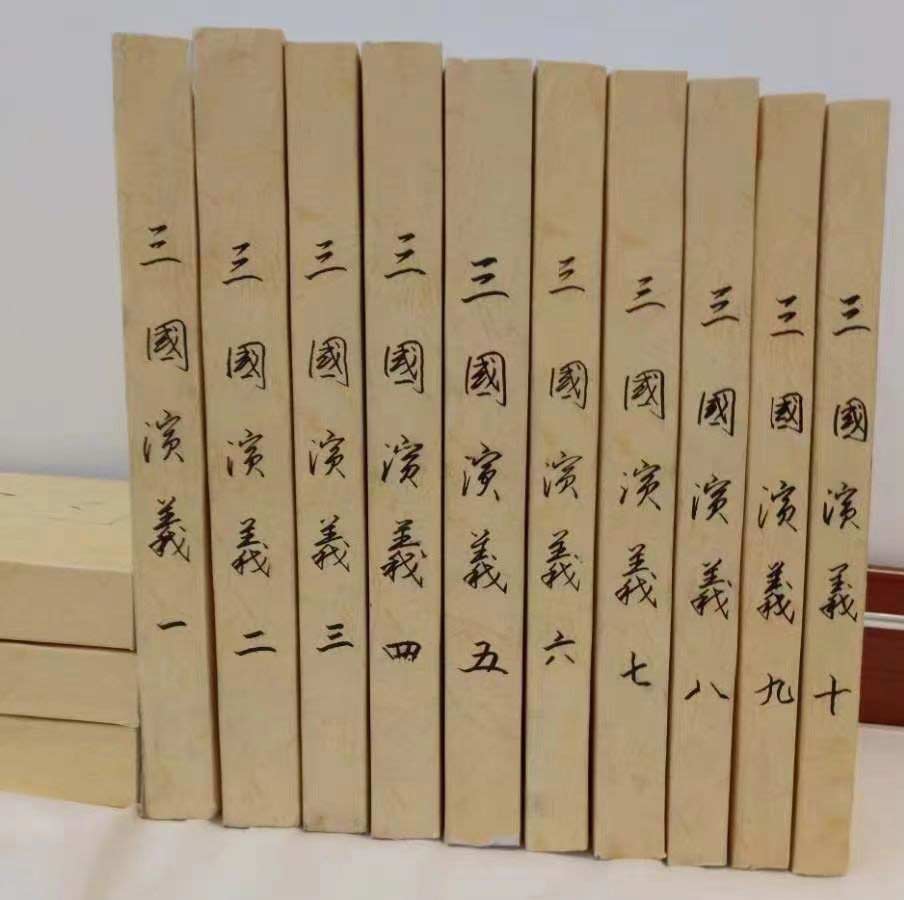 三國演義一
三國演義二
三國演義三
三國演義四
三國演義五
三國演義六
三國演義七
三國演義八
三國演義九
三國演義十